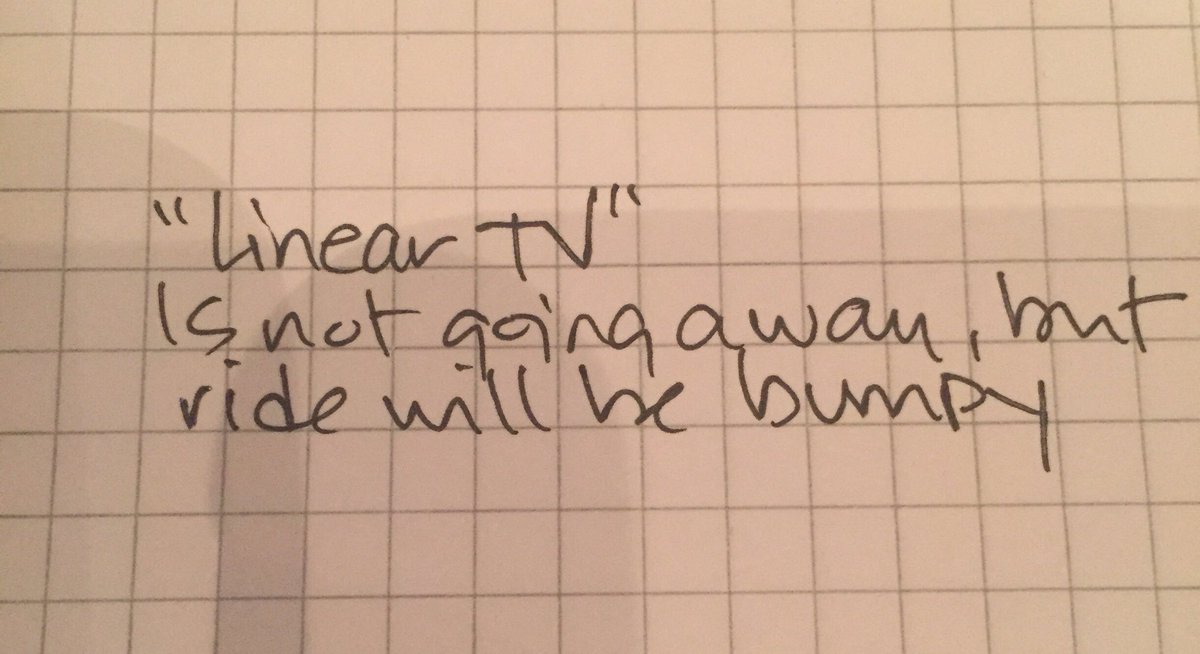 "Linear TV"
Is not going away, but
ride will be bumpy